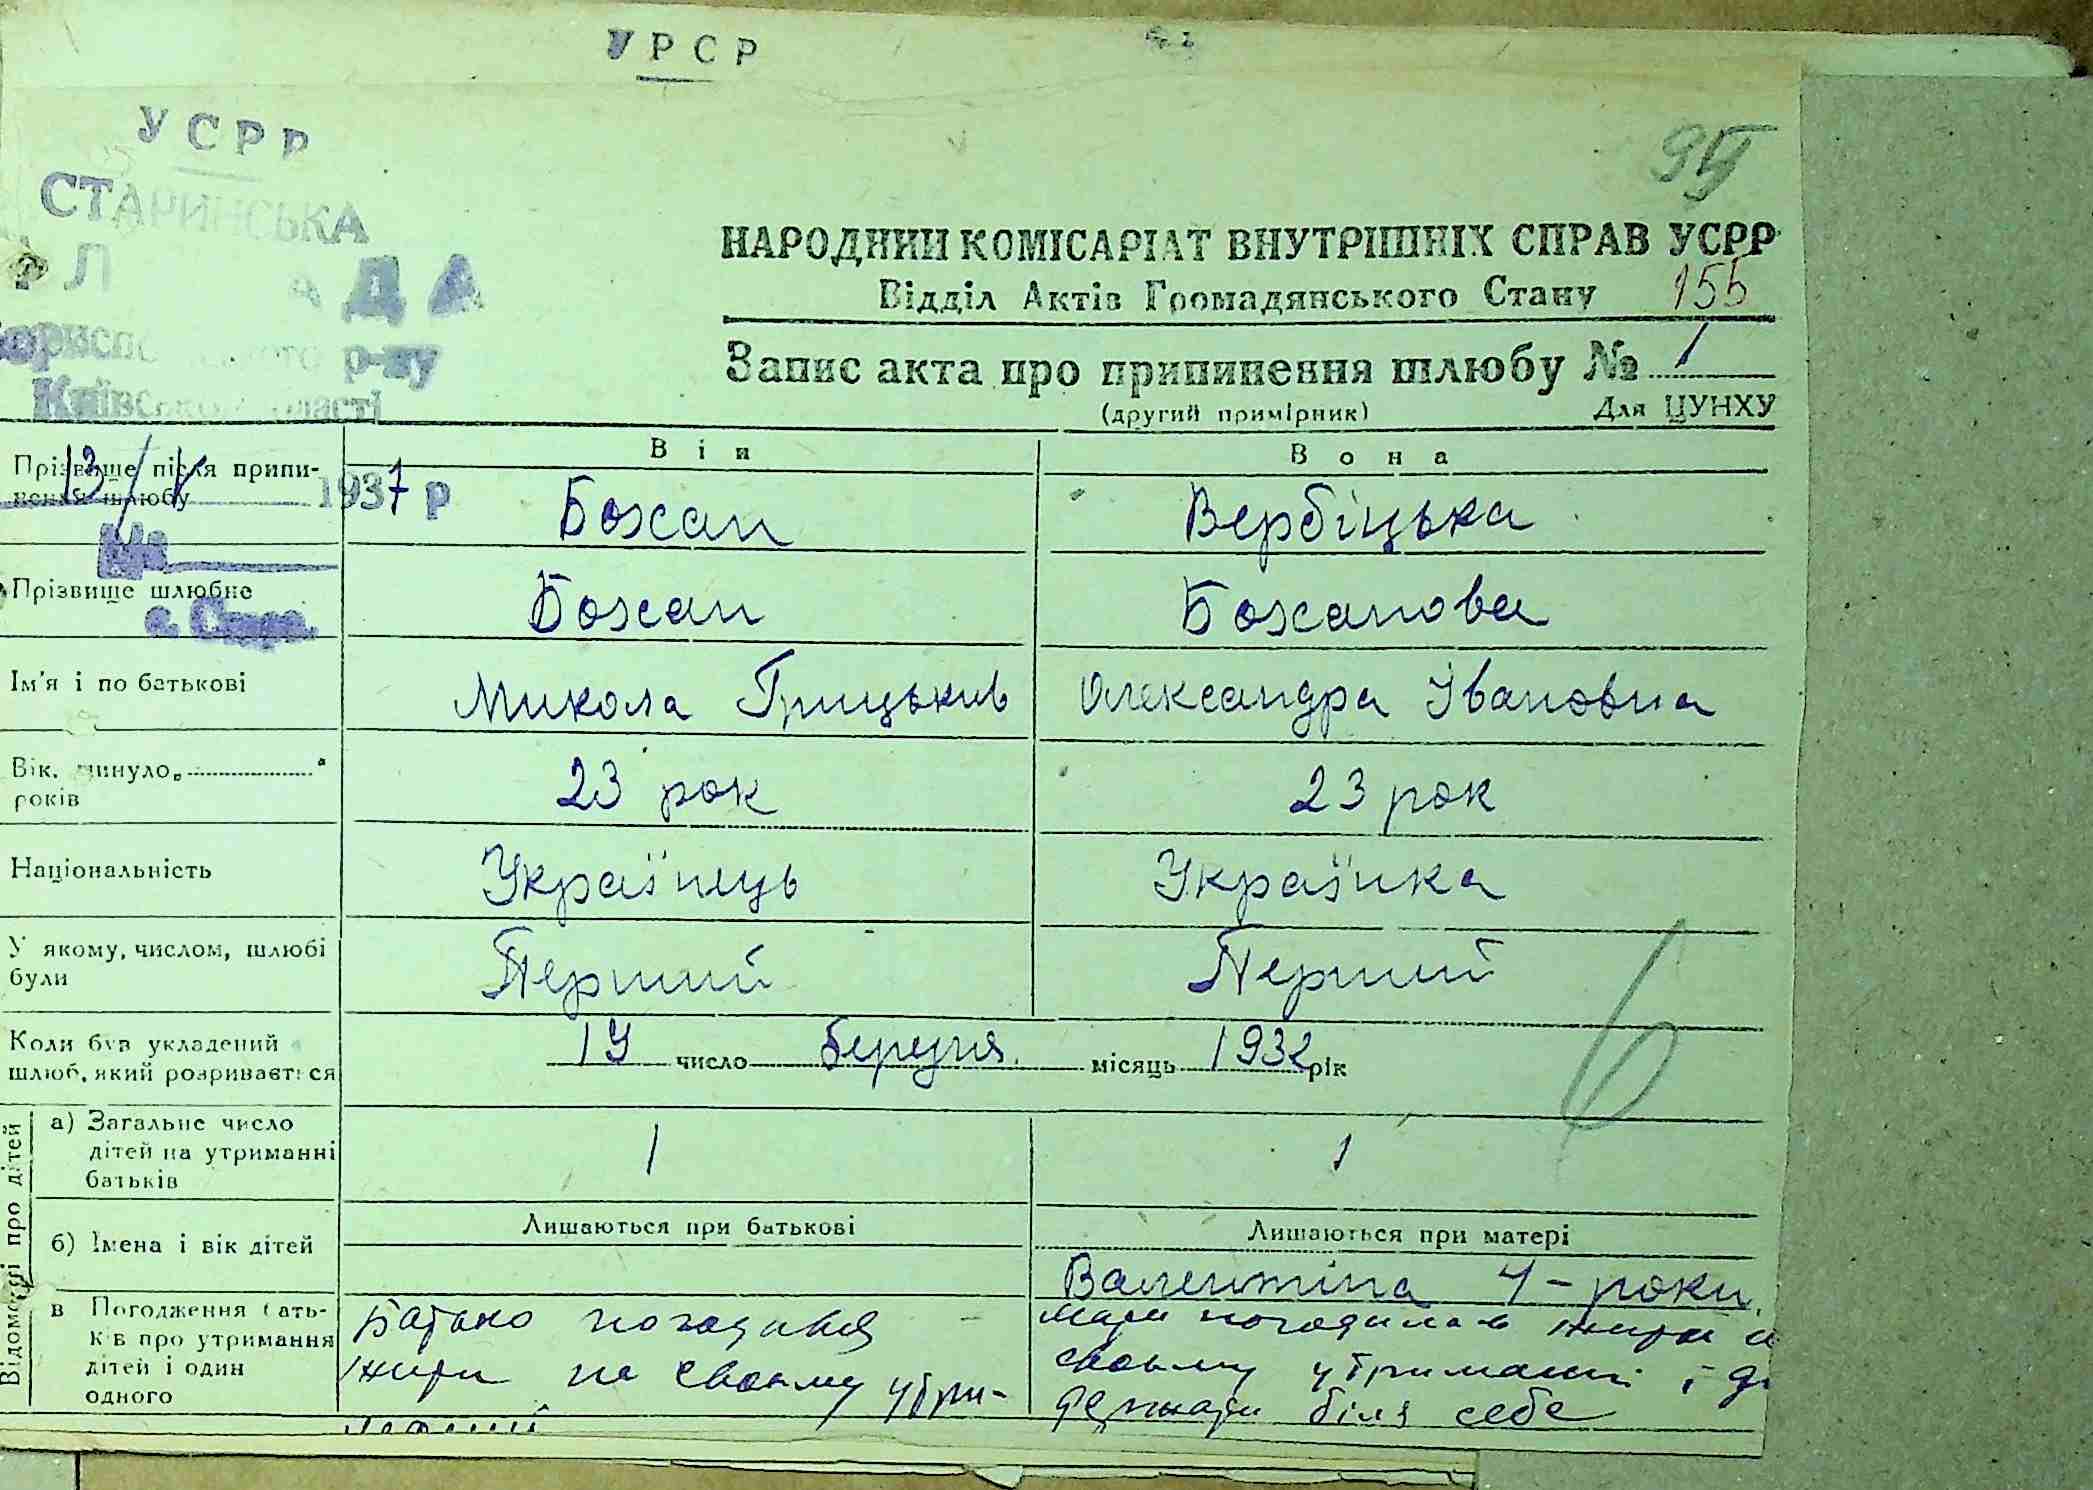 УРСР
УСРР
СТАРИНСЬКА
АДА
р-ну
Київської області
155
НАРОДНИЙ КОМІСАРІАТ ВНУТРІШНІХ СПРАВ УСРР
Відділ Актів Громадянського Стану
Запис акта про припинення шлюбу № 1
(другий примірник) Для ЦУНХУ
Він Вона
Прізвище після припи-
нення шлюбу
13/V 1937 р
Божан Вербіцька
№
Прізвище шлюбне Божан Божанова
с. Стара
Ім'я і по батькові Микола Грицьків Олександра Івановна
Вік. минуло „ “
років
23 рок 23 рок
Національність Українець Українка
У якому, числом, шлюбі
були
Перший Перший
Коли був укладений
шлюб, який розривається
19 число березня місяць 1932 рік
Відомості про дітей
а) Загальне число
дітей на утриманні
батьків
1 1
б) Імена і вік дітей
Лишаються при батькові Лишаються при матері
Валентіна 4-роки.
в Погодження бать-
ків про утримання
дітей і один
одного
Батько погодився
жити на своєму утри-
мати погодилась жити
своєму утриманні і
держати біля себе